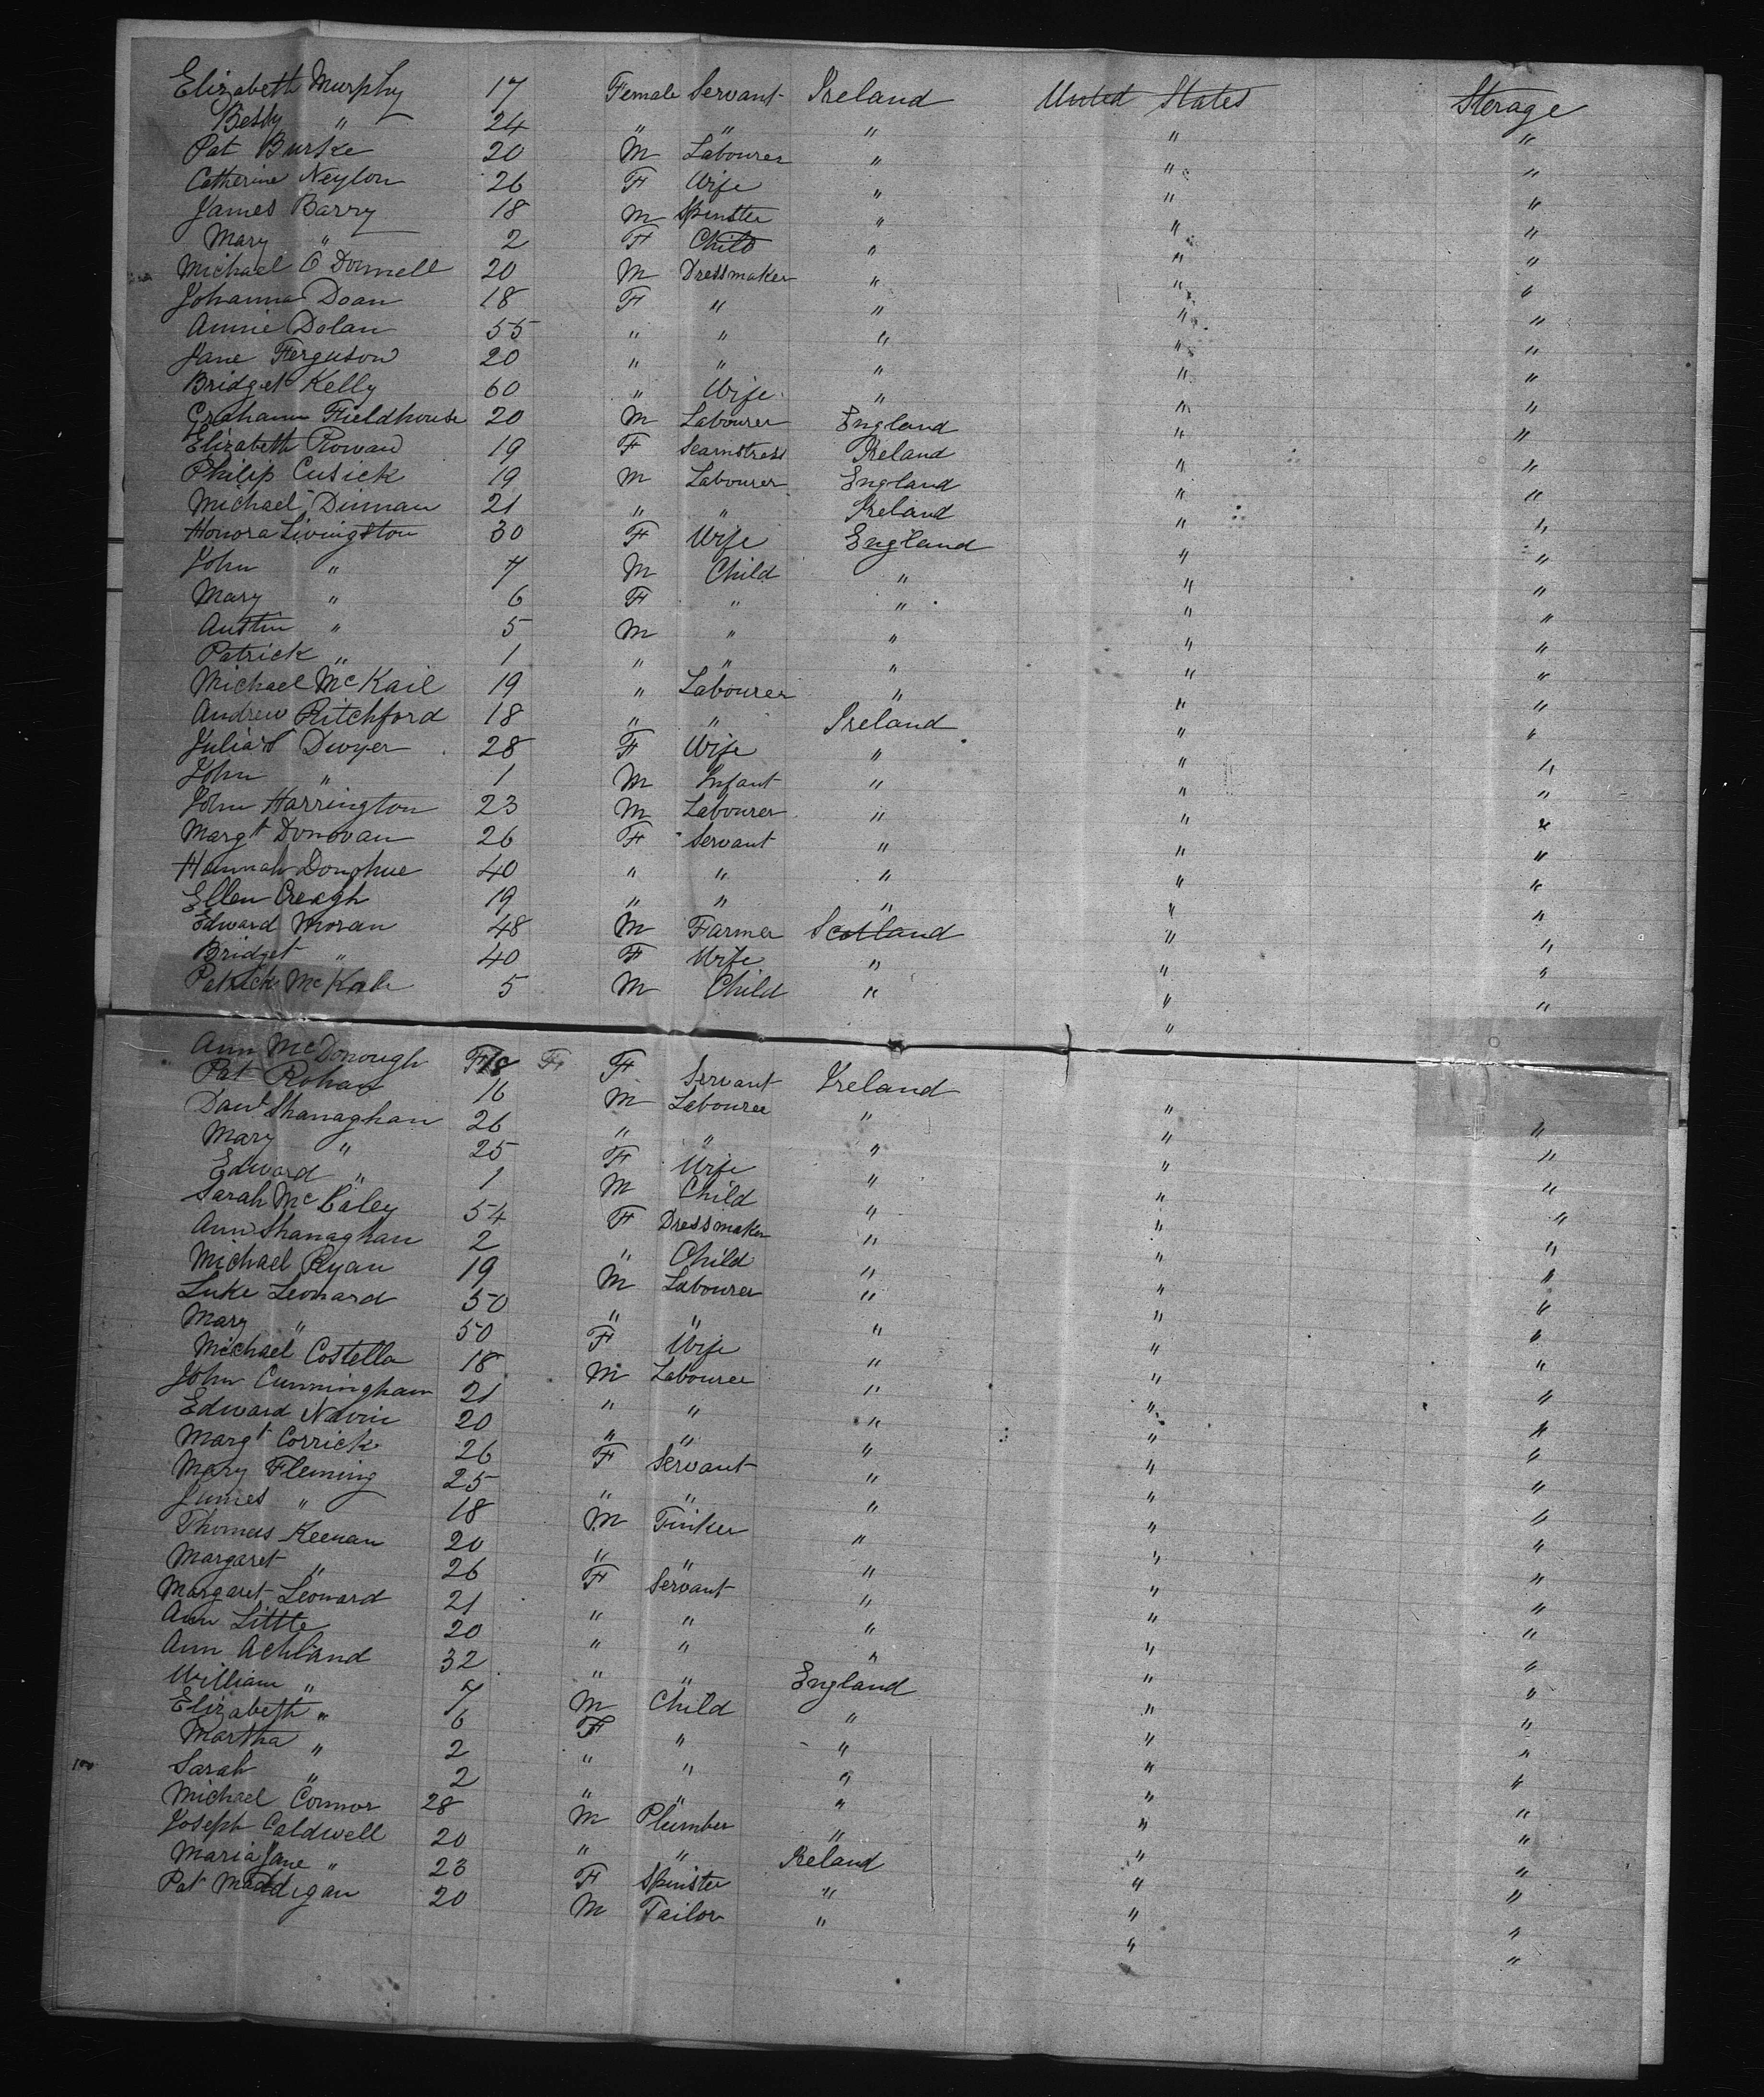 Elizabeth Murphy 17 Female Servant Ireland United States Sterage
Bessy " 24 " " " " "
Pat Burke 20 M Labourer " " "
Catherine Neylon 26 F Wife " " "
James Barry 18 M Spinster " " "
Mary " 2 F Child " " "
Michael O Donnell 20 M Dressmaker " " "
Johanna Doan 18 F " " " "
Annie Dolan 55 " " " " "
Jane Ferguson 20 " " " " "
Bridget Kelly 60 " Wife " " "
Graham Fieldhouse 20 M Labourer England " "
Elizabeth Rowan 19 F Seamstress Ireland " "
Philip Cusick 19 M Labourer England " "
Michael Dinnan 21 " " Ireland " "
Honora Livingston 30 F Wife England " "
John " 7 M Child " " "
Mary " 6 F " " " "
Austin " 5 M " " " "
Patrick " 1 " " " " "
Michael McKail 19 " Labourer " " "
Andrew Ritchford 18 " " Ireland " "
Julia Dwyer 28 F Wife " " "
John " 1 M Infant " " "
John Harrington 23 M Labourer " " "
Margt Donovan 26 F Servant " " "
Hannah Donghue 40 " " " " "
Ellen Creagh 19 " " " " "
Edward Moran 48 M Farmer Scotland " "
Bridget " 40 F Wife " " "
Patrick McKale 5 M Child " " "
Ann McDonough 18 F Servant Ireland " "
Pat Rohan 16 M Labourer " " "
Danl Shanaghan 26 " " " " "
Mary " 25 F Wife " " "
Edward " 1 M Child " " "
Sarah McCaley 54 F Dressmaker " " "
Ann Shanaghan 2 " Child " " "
Michael Ryan 19 M Labourer " " "
Luke Leonard 50 " " " " "
Mary " 50 F Wife " " "
Michael Costella 18 M Labourer " " "
John Cunningham 21 " " " " "
Edward Navin 20 " " " " "
Margt Corrick 26 F Servant " " "
Mary Fleming 25 " " " " "
James " 18 M Tinker " " "
Thomas Keenan 20 " " " " "
Margaret " 26 F Servant " " "
Margaret Leonard 21 " " " " "
Ann Little 20 " " " " "
Ann Achland 32 " " England " "
William " 7 M Child " " "
Elizabeth " 6 F " " " "
Martha " 2 " " " " "
Sarah " 2 " " " " "
Michael Connor 28 M Plumber " " "
Joseph Caldwell 20 " " Ireland " "
Maria Jane " 23 F Spinster " " "
Pat Maddigan 20 M Tailor " " "